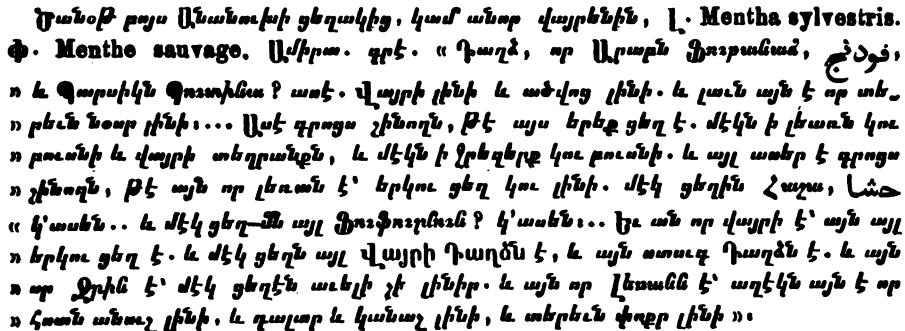 Ծանօթ բոյս Անանուխի ցեղակից, կամ անոր վայրենին, Լ. Mentha sylvestris.
Փ. Menthe sauvage. Ամիրտ. գրէ. « Դաղձ, որ Արաբն Ֆութանաճ, فودنج,
» և Պարսիկն Պուտինա ? ասէ. Վայրի լինի և ածվոց լինի. և լաւն այն է որ տե-
» րեւն նօսր լինի։... Ասէ գրոցս շինողն, թէ այս երեք ցեղ է. մէկն ի լեառն կու
» բուսնի և վայրի տեղրանքն, և մէկն ի ջրեզերք կու բուսնի. և այլ ասեր է գրոցս
» շինողն, թէ այն որ լեռան է՝ երկու ցեղ կու լինի. մէկ ցեղին Հաշա, حشا
« կ'ասեն.. և մէկ ցեղ—մն այլ Ֆուֆուրլուն ? կ'ասեն։.. Եւ ան որ վայրի է՝ այն այլ
» երկու ցեղ է. և մէկ ցեղն այլ Վայրի Դաղձն է, և այն ստուգ Դաղձն է. և այն
» որ Ջրին է՝ մէկ ցեղէն աւելի չի լինիր. և այն որ Լեռանն է՝ աղէկն այն է որ
» հոտն անուշ լինի, և դալար և կանաչ լինի, և տերեւն փոքր լինի »։